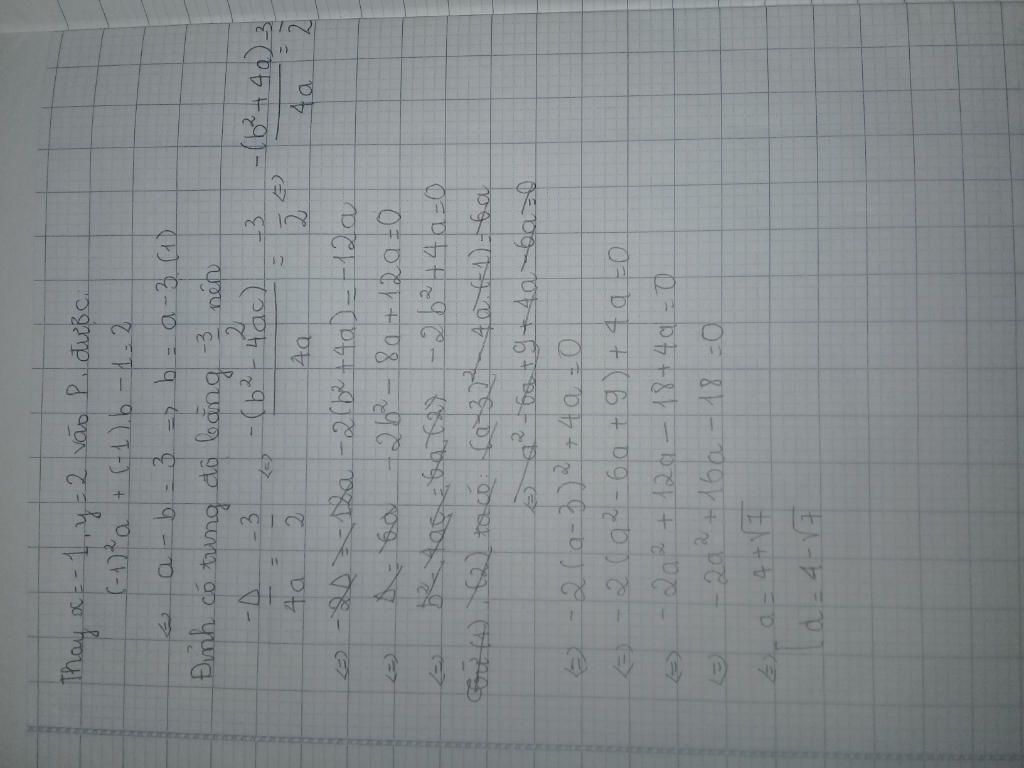 Thay x = -1, y = 2 vào P, được.
(-1)²a + (-1)b - 1 = 2
⇔ a - b = 3 => b = a - 3 (1)
Đỉnh có tung độ bằng -3/2 nên
-Δ/4a = -3/2 ⇔ -(b² - 4ac)/4a = -3/2 ⇔ -(b² + 4a)/4a = -3/2
⇔ -2Δ = -12a -2(b² + 4a) = -12a
⇔ Δ = 6a -2b² - 8a + 12a = 0
⇔ b² - 4ac = 6a (2) -2b² + 4a = 0
(a-3)² - 4a.(-1) = 6a
⇔ a² - 6a + 9 + 4a - 6a = 0
⇔ -2(a-3)² + 4a = 0
⇔ -2(a² - 6a + 9) + 4a = 0
⇔ -2a² + 12a - 18 + 4a = 0
⇔ -2a² + 16a - 18 = 0
⇔ [a = 4 + √7
[a = 4 - √7